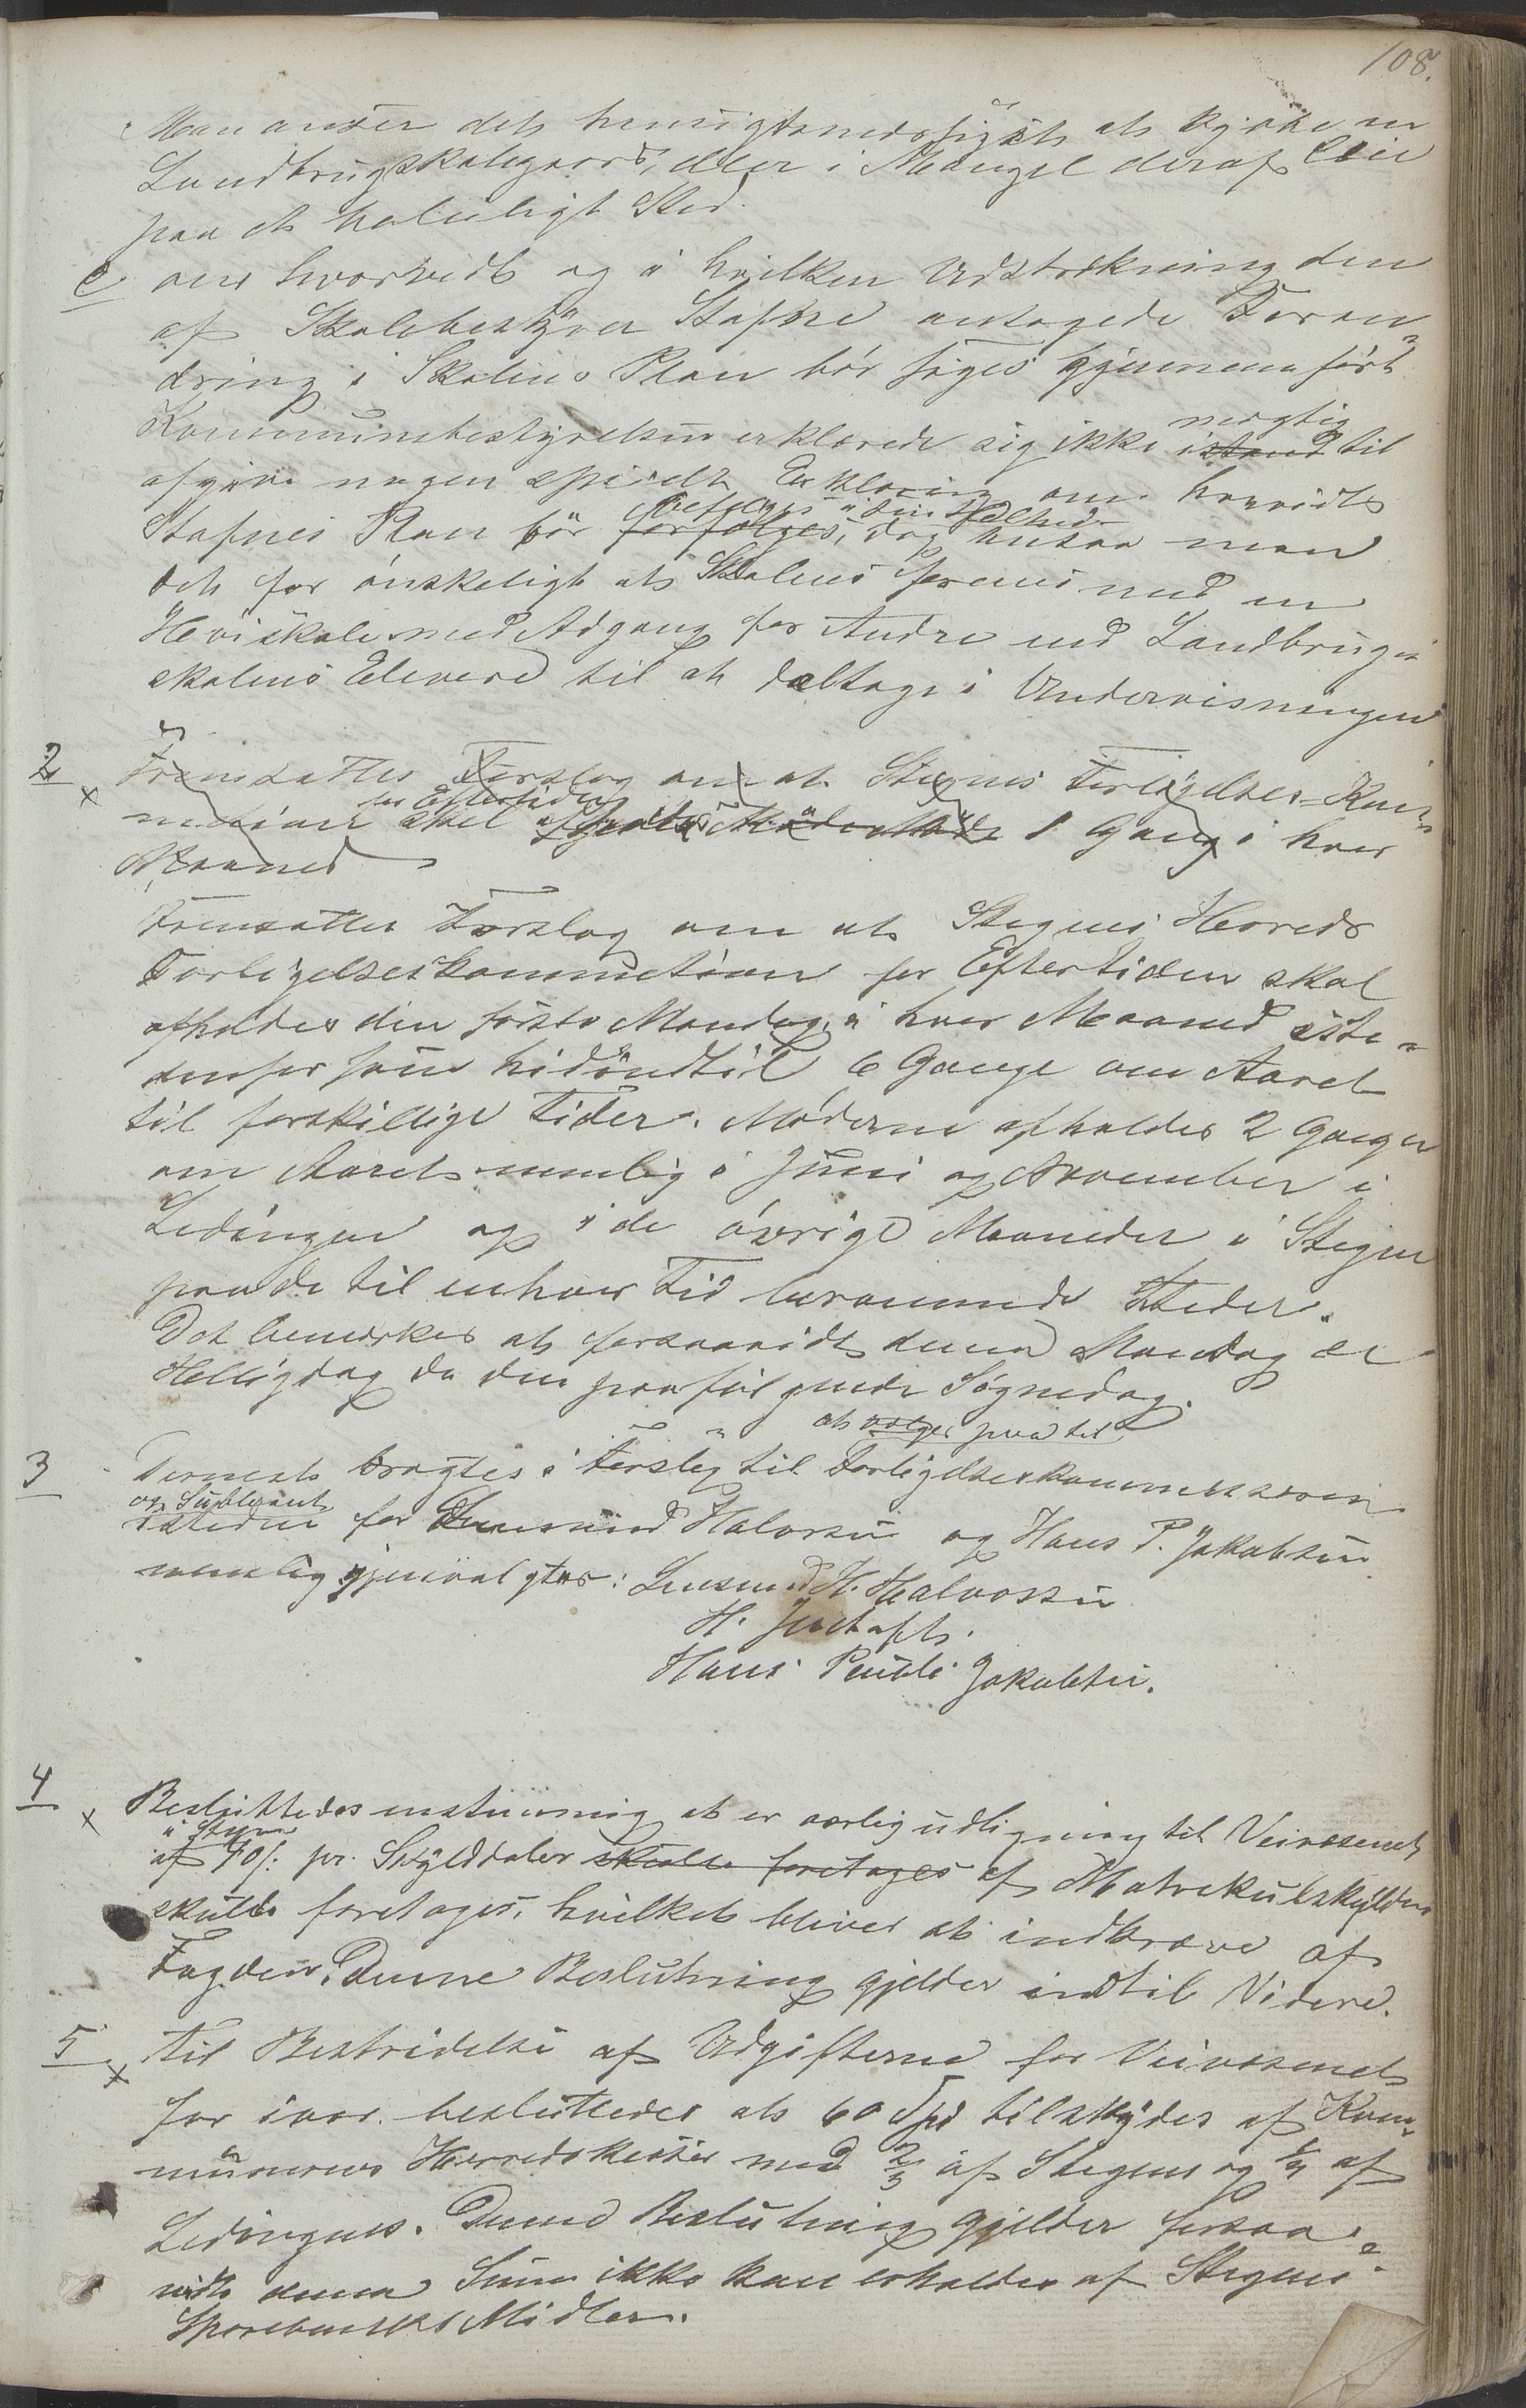 108.
Man anseer det hensigtsmessigst at kjøbe en
Landbrugsskolegaard, eller i Mangel deraf leie
paa et beleiligt Sted.
c om hvorvidt og i hvilken Udstrekning den
af Skolebestyrer Stafne antagede Foran
dring i Skolens Plan bør søges gjennemført
Kommunebestyrelsen erklærede sig ikke istand mægtig til
afgive nogen speciel Erklæring om hvorvidt
Stafnes Plan bør forfølges, befølges i sin Helhed dog antaa man
det for ønskeligt at Skolens forenes med en
Høiskole med Adgang for Andre end Landbrugs
skolens Elever til at deltage i Undervisningen
2 x Fremsattes Forslag om at Stegens Forligelses-Kom
mission skal for Eftertiden afholdes Møder 1 Gang i hver
Maaned
Fremsattes Forslag om at Stegens Herreds
Forligelseskommission for Eftertiden skal
afholdes den første Mandag i hver Maaned iste
denfor som hidindtil 6 Gange om Aaret
til forskillige Tider. Møderne afholdes 2 Gange
om Aaret nemlig i Juni og November i
Ledingen og i de øvrige Maaneder i Stegen
paa de til enhver Tid berammede Steder.
Det bemerkes at forsaavidt denne Mandag er
Helligdag da den paafølgende Søgnedag.
3 Dernest bragtes i Forslag til at vælges paa til Forligelseskommissæren
og Supleant istedene for Halvorsen og Hans P. Jakobsen
nemlig gjenvalgtes: Lensmd H. Halvorsen
H. Justafs.
Hans Peüls Jakobsen.
4 x Besluttedes enstemmig at en aarlig udligning til Veivæsenet
i Stegen af 10 s: pr. Skylddaler skulde foretages af Matrikulskylden
skulde foretages, hvilket bliver at indkræve af
Fogden. Denne Beslutning gjelder indtil Videre.
5 x Til Bestridelse af Udgifterne for Veivæsenet
for iaar besluttedes at 60 Spd tilskydes af Kom
munernes Herredskasse med 2/3 af Stegens og 1/3 af
Ledingens. Denne Beslutning gjelder forsaa
vidt denne Sum ikke kan erholdes af Stegens
Sparebanks Midler.